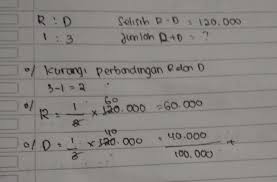 R : D Selisih R - D = 120.000
1 : 3 Jumlah R + D = ?
o/ Kurangi perbandingan R dan D
3-1 = 2
o/ R = 1/2 x 120.000 = 60.000
60
o/ D = 1/3 x 120.000 = 40.000 +
40
100.000